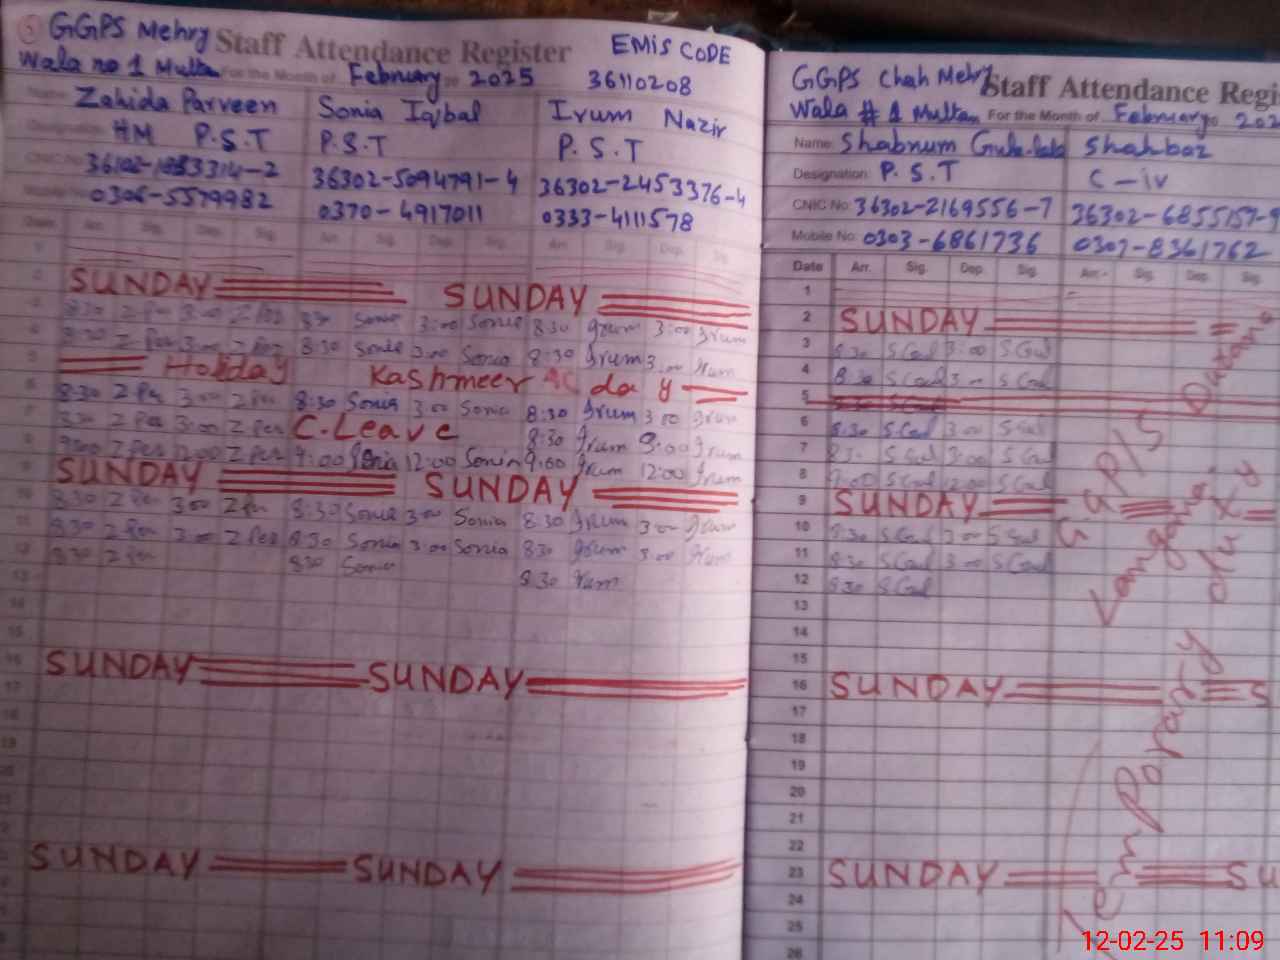 GGPS Mehry Staff Attendance Register EMIS CODE
Wala no 1 Multan For the Month of February 2025 36110208
Zahida Parveen Sonia Iqbal Irum Nazir
HM P.S.T P.S.T P.S.T
36302-5094791-4 36302-2453376-4
0306-5579982 0370-4917011 0333-4111578
Arr. Sig. Dep. Sig. Arr. Sig. Dep. Sig. Arr. Sig. Dep. Sig.
1
2 SUNDAY SUNDAY
3 8:30 Z Per 3:00 Z Per 8:30 Sonia 3:00 Sonia 8:30 Irum 3:00 Irum
4 8:30 Z Per 3:00 Z Per 8:30 Sonia 3:00 Sonia 8:30 Irum 3:00 Irum
5 Holiday Kashmeer day
6 8:30 Z Per 3:00 Z Per 8:30 Sonia 3:00 Sonia 8:30 Irum 3:00 Irum
7 8:30 Z Per 3:00 Z Per C.Leave 8:30 Irum 3:00 Irum
8 9:00 Z Per 12:00 Z Per 9:00 Sonia 12:00 Sonia 9:00 Irum 12:00 Irum
9 SUNDAY SUNDAY
10 8:30 Z Per 3:00 Z Per 8:30 Sonia 3:00 Sonia 8:30 Irum 3:00 Irum
11 8:30 Z Per 3:00 Z Per 8:30 Sonia 3:00 Sonia 8:30 Irum 3:00 Irum
12 8:30 Z Per 8:30 Sonia 8:30 Irum
13
14
15
16 SUNDAY SUNDAY
17
18
19
20
SUNDAY SUNDAY
GGPS Chah Mehry Staff Attendance Regi
Wala # 1 Multan For the Month of February 202
Name: Shabnum Shahbaz
Designation: P.S.T C-iv
CNIC No: 36302-2169556-7 36302-6855157-9
Mobile No: 0303-6861736 0307-8361762
Date Arr. Sig. Dep. Sig. Arr. Sig. Dep. Sig.
1
2 SUNDAY
3 8:30 S Gul 3:00 S Gul
4 8:30 S Gul 3:00 S Gul
5
6 8:30 S Gul 3:00 S Gul
7 8:30 S Gul 3:00 S Gul
8 9:00 S Gul 12:00 S Gul
9 SUNDAY
10 8:30 S Gul 3:00 S Gul
11 8:30 S Gul 3:00 S Gul
12 8:30 S Gul
13
14
15
16 SUNDAY S
17
18
19
20
21
22
23 SUNDAY SU
24
25
26
Temporary duty
12-02-25 11:09